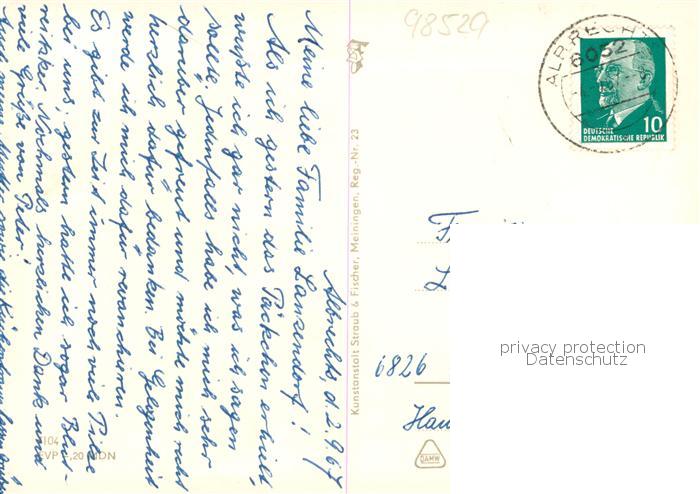 Albrechts, d. 2.9.67
Meine liebe Familie Lanzendorf!
Als ich gestern das Päckchen erhielt,
wußte ich gar nicht, was ich sagen
sollte. Jedenfalls habe ich mich sehr
darüber gefreut und möchte mich recht
herzlich dafür bedanken. Bei Gelegenheit
werde ich mich dafür revanchieren.
Es gibt zur Zeit immer noch viele Pilze
bei uns, gestern hatte ich sogar
Nochmals herzlichen Dank und
viele Grüße von Peter!
Auch meine Mutter
4104
EVP -,20 MDN
Kunstanstalt Straub & Fischer, Meiningen, Reg.-Nr. 23
98529
ALBRECHTS
6052
10
DEUTSCHE
DEMOKRATISCHE REPUBLIK
6826
DAMW
privacy protection
Datenschutz